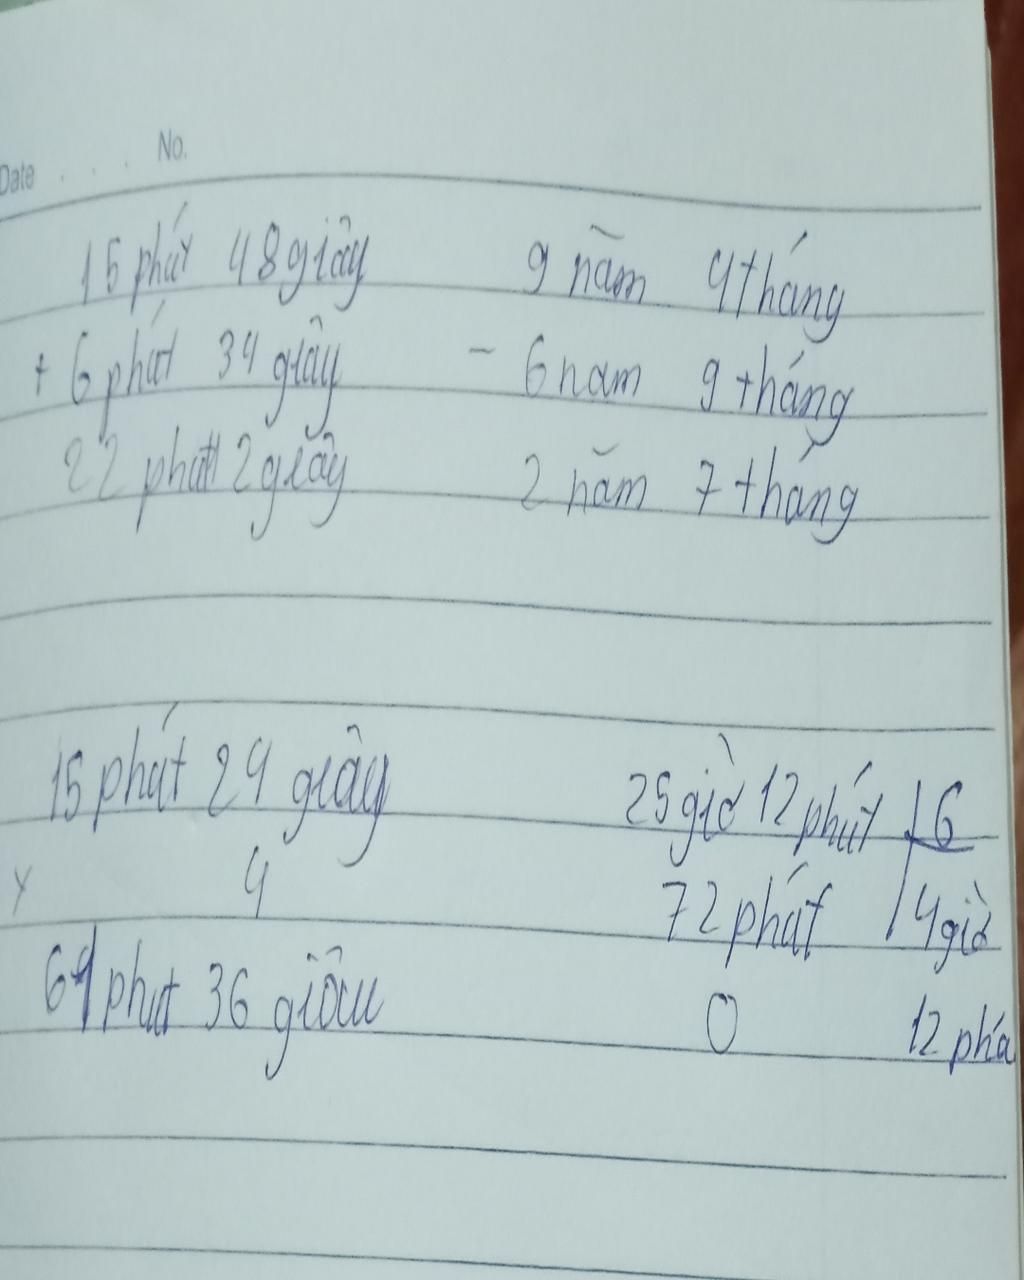 Date . . . No.
15 phút 48 giây 9 năm 4 tháng
+ 6 phút 34 giây - 6 nam 9 tháng
22 phút 2 giây 2 năm 7 tháng
15 phát 24 giây 25 giờ 12 phút 6
x 4 72 phát 4 giờ
phut 36 0 12 phú